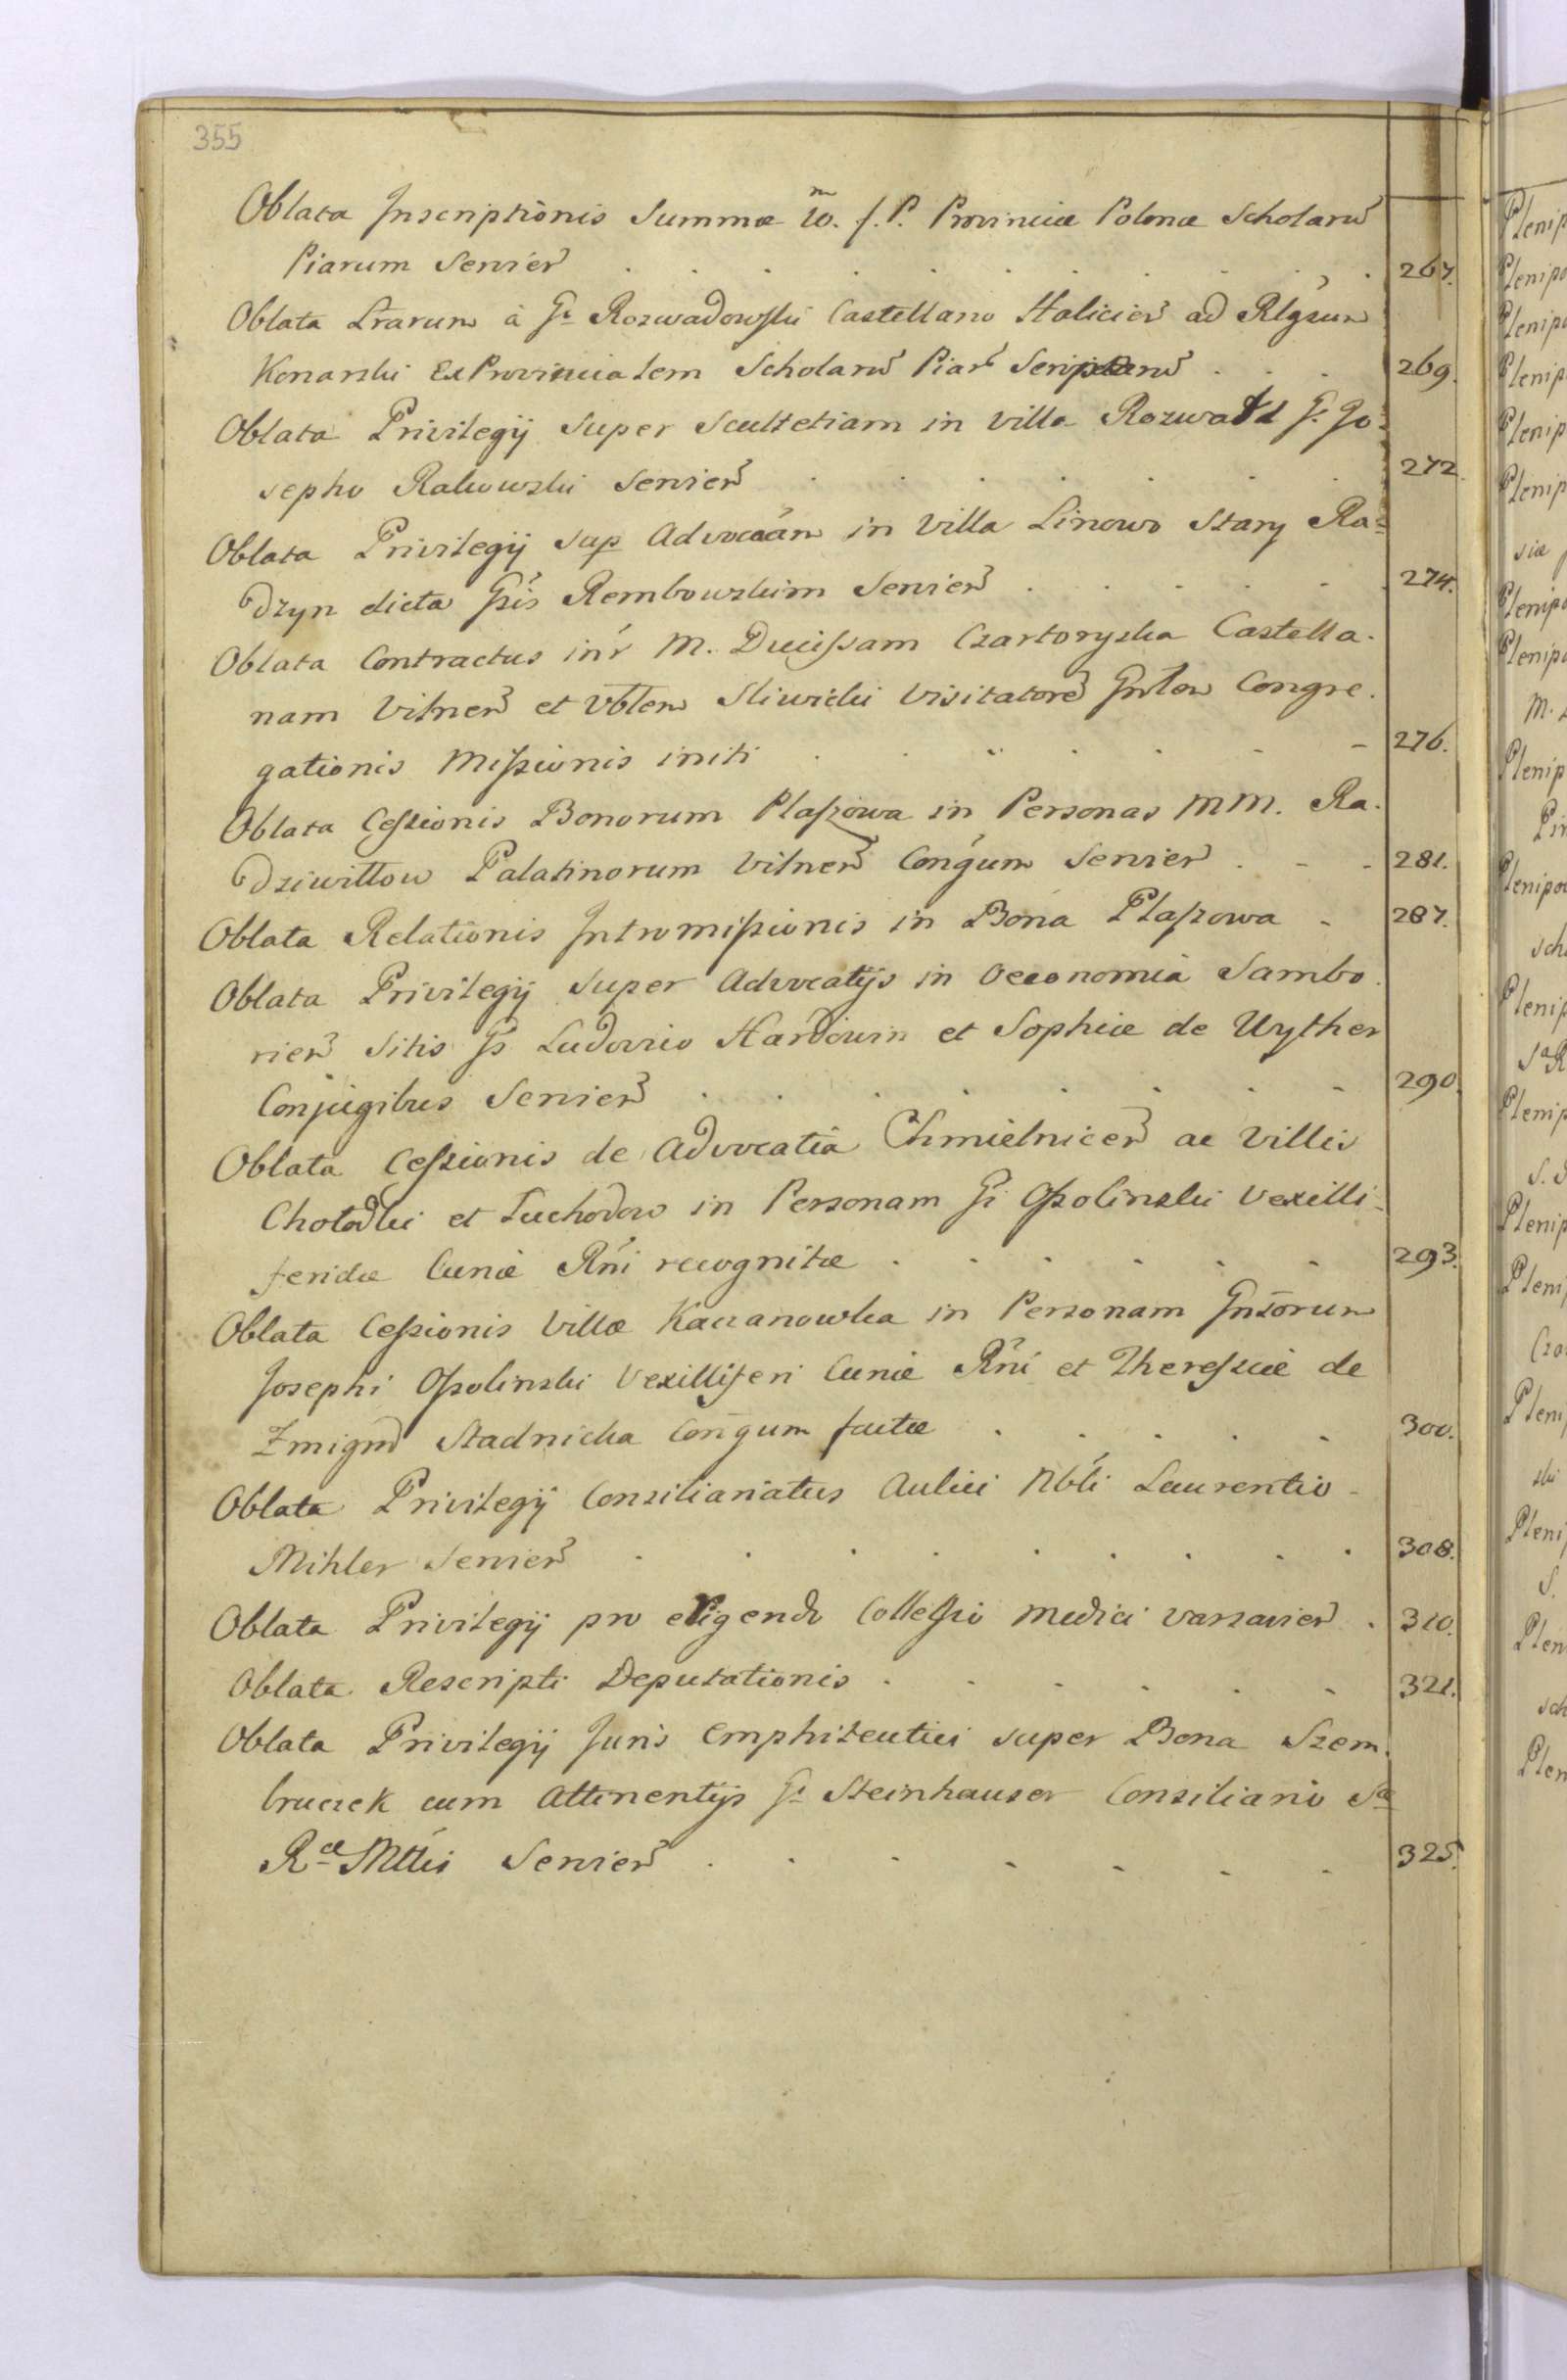 355
Oblata Inscriptionis Summæ 10.m f. P. Provinciæ Polonæ Scholarū
Piarum Servień 267.
Oblata Lrarum à G. Rozwadowski Castellano Haliceń ad Rlgsum
Konarski ExProvincialem Scholarū Piar Scriptarū 269.
Oblata Privilegij super Scultetiam in villa Rozwald G. Jo=
sepho Rakowski Servień 272
Oblata Privilegij sup Advocaãm in Villa Linowo Stary Ra=
dzyn dicta Gsis Rembowskim Servień 274.
Oblata Contractus intr M. Ducissam Czartoryska Castella.
nam Vilneń et Vblem Sliwicki Visitatorē Gnlem Congre.
gationis Missionis initi 276.
Oblata Cessionis Bonorum Plaszowa in Personas MM. Ra.
dziwillow Palatinorum Vilneń Congum Servień 281.
Oblata Relationis Intromissionis in Bona Plaszowa 287.
Oblata Privilegij super Advocatijs in Oeconomia Sambo.
rień Sitis Gs Ludovico Hardouin et Sophiæ de Uyther
Conjugibus Servień 290.
Oblata Cessionis de Advocatia Chmielniceń ac Villis
Cholodki et Suchodow in Personam G. Ossolinski Vexilli=
feridæ Curiæ Rni recognitæ 293.
Oblata Cessionis Villæ Kaczanowka in Personam Gnsorum
Josephi Ossolinski Vexilliferi Curiæ Rni et Theressiæ de
Zmigrod Stadnicka Congum factæ 300.
Oblata Privilegij Consiliariatus Aulici Nbli Laurentio
Mihler Servień 308.
Oblata Privilegij pro erigendo Collegio Medici Varsavień 310.
Oblata Rescripti Deputationis 321.
Oblata Privilegij Juris Emphiteutici super Bona Szem.
bruczek cum Attinentijs G. Steinhauser Consiliario Sæ
Ræ Mttis Servień 325.